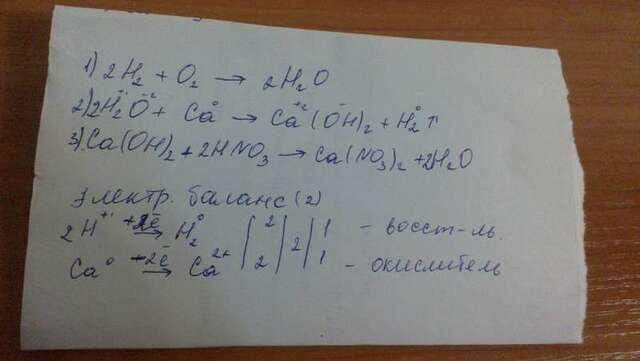 1) 2H₂ + O₂ → 2H₂O
2) 2H₂⁺¹O⁻² + Ca⁰ → Ca⁺²(OH)₂⁻ + H₂⁰↑
3) Ca(OH)₂ + 2HNO₃ → Ca(NO₃)₂ + 2H₂O
Электр. баланс (2)
2H⁺¹ +2ē → H₂⁰ | 2 | 2 | 1 – восст-ль.
Ca⁰ –2ē → Ca²⁺ | 2 | | 1 – окислитель